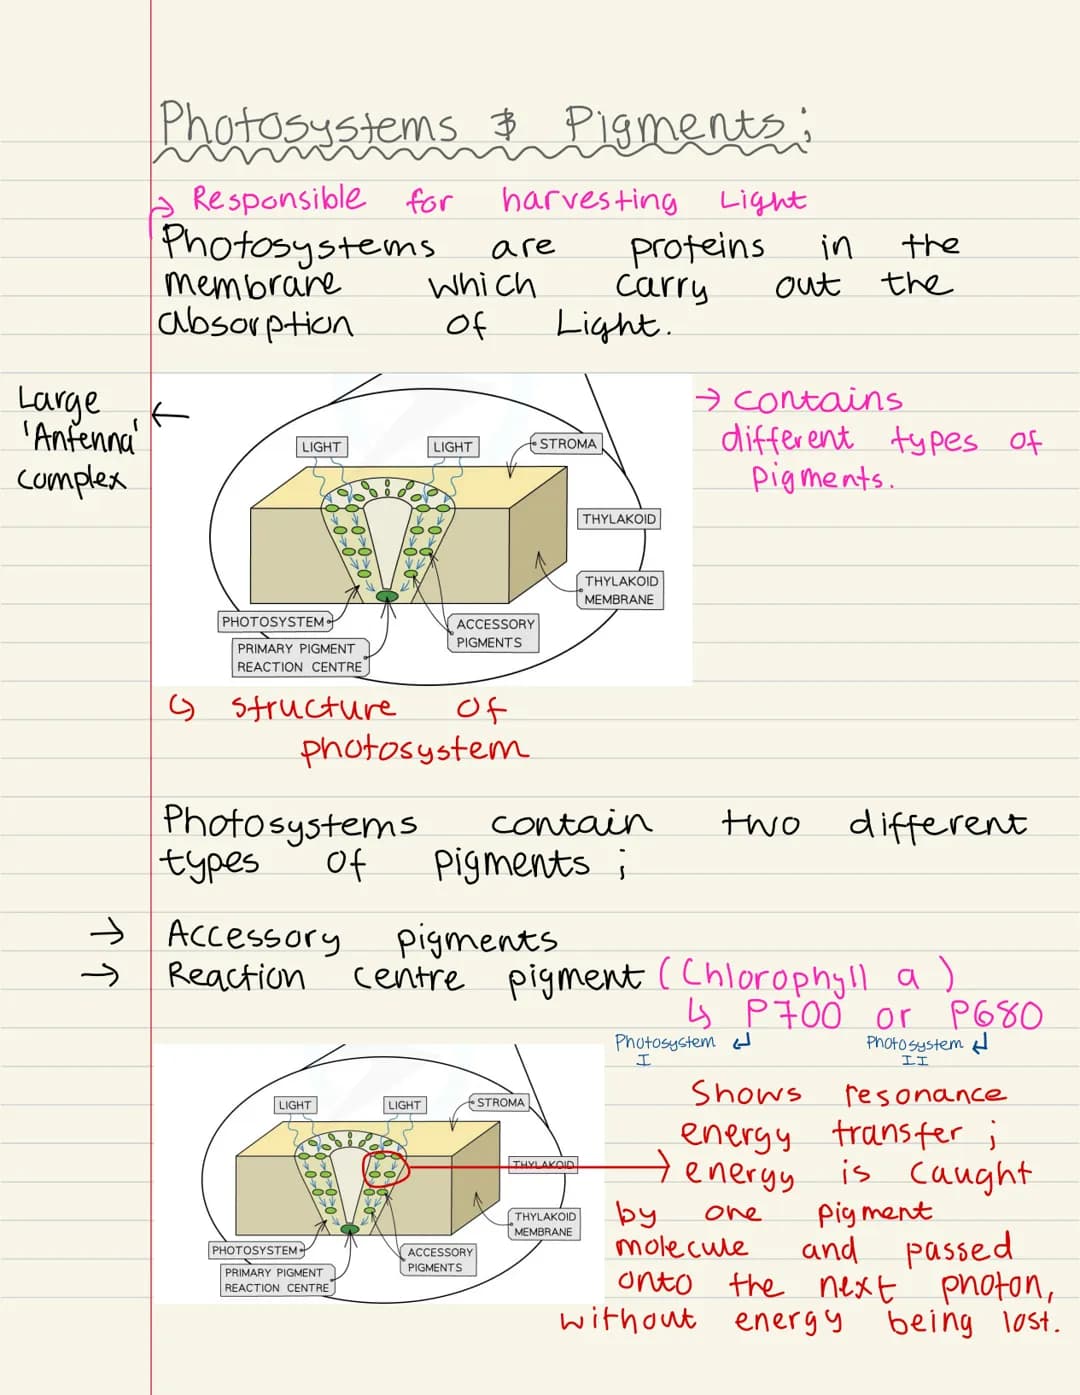 Photosystems & Pigments;
Responsible for harvesting Light
Photosystems are proteins in the
membrane which carry out the
absorption of Light.
Large
'Antenna'
complex
→ contains
different types of
pigments.
LIGHT
LIGHT
STROMA
THYLAKOID
THYLAKOID
MEMBRANE
PHOTOSYSTEM
ACCESSORY
PIGMENTS
PRIMARY PIGMENT
REACTION CENTRE
↳ structure of
photosystem
Photosystems contain two different
types of pigments ;
→ Accessory pigments
→ Reaction centre pigment (Chlorophyll a)
↳ P700 or P680
Photosystem
I
Photosystem
II
LIGHT
LIGHT
STROMA
THYLAKOID
THYLAKOID
MEMBRANE
PHOTOSYSTEM
ACCESSORY
PIGMENTS
PRIMARY PIGMENT
REACTION CENTRE
Shows resonance
energy transfer ;
→ energy is caught
by one pigment
molecule and passed
onto the next photon,
without energy being lost.